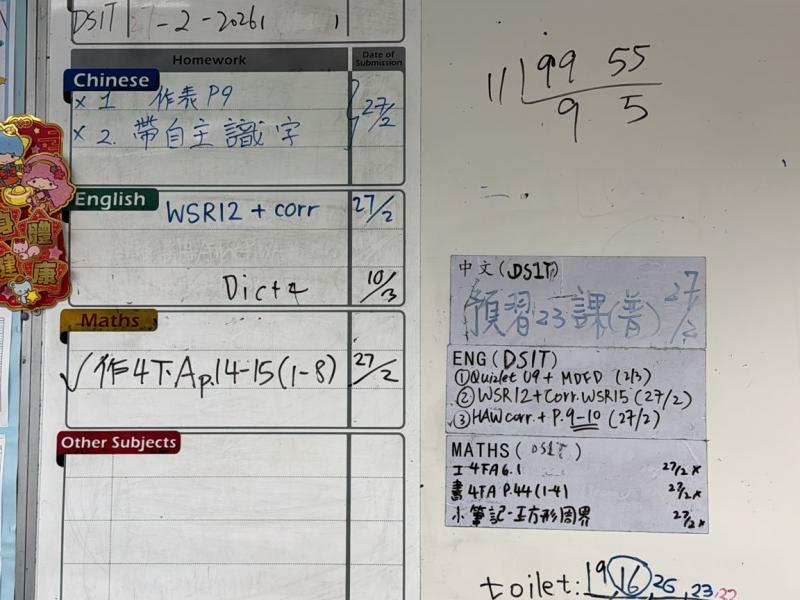 DSIT 27-2-2026
Homework
Date of Submission
Chinese
× 1 作表 P9
× 2. 帶自主識字
27/2
English
WSR12 + corr 27/2
Dict 4 10/3
Maths
✓ 作4下A p.14-15(1-8) 27/2
Other Subjects
11 99 55
9 5
身體健康
中文(DSIT)
預習23課(普) 27/2
ENG (DSIT)
①Quizlet U9 + MDFD (2/3)
② WSR12+Corr. WSR15 (27/2)
✓③ HAW corr. + P.9-10 (27/2)
MATHS( DSIT )
工 4FA 6.1 27/2 ×
書 4FA P.44(1-4) 27/2 ×
小筆記-正方形周界 27/2 ×
toilet: 19, 16, 26, 23, 22